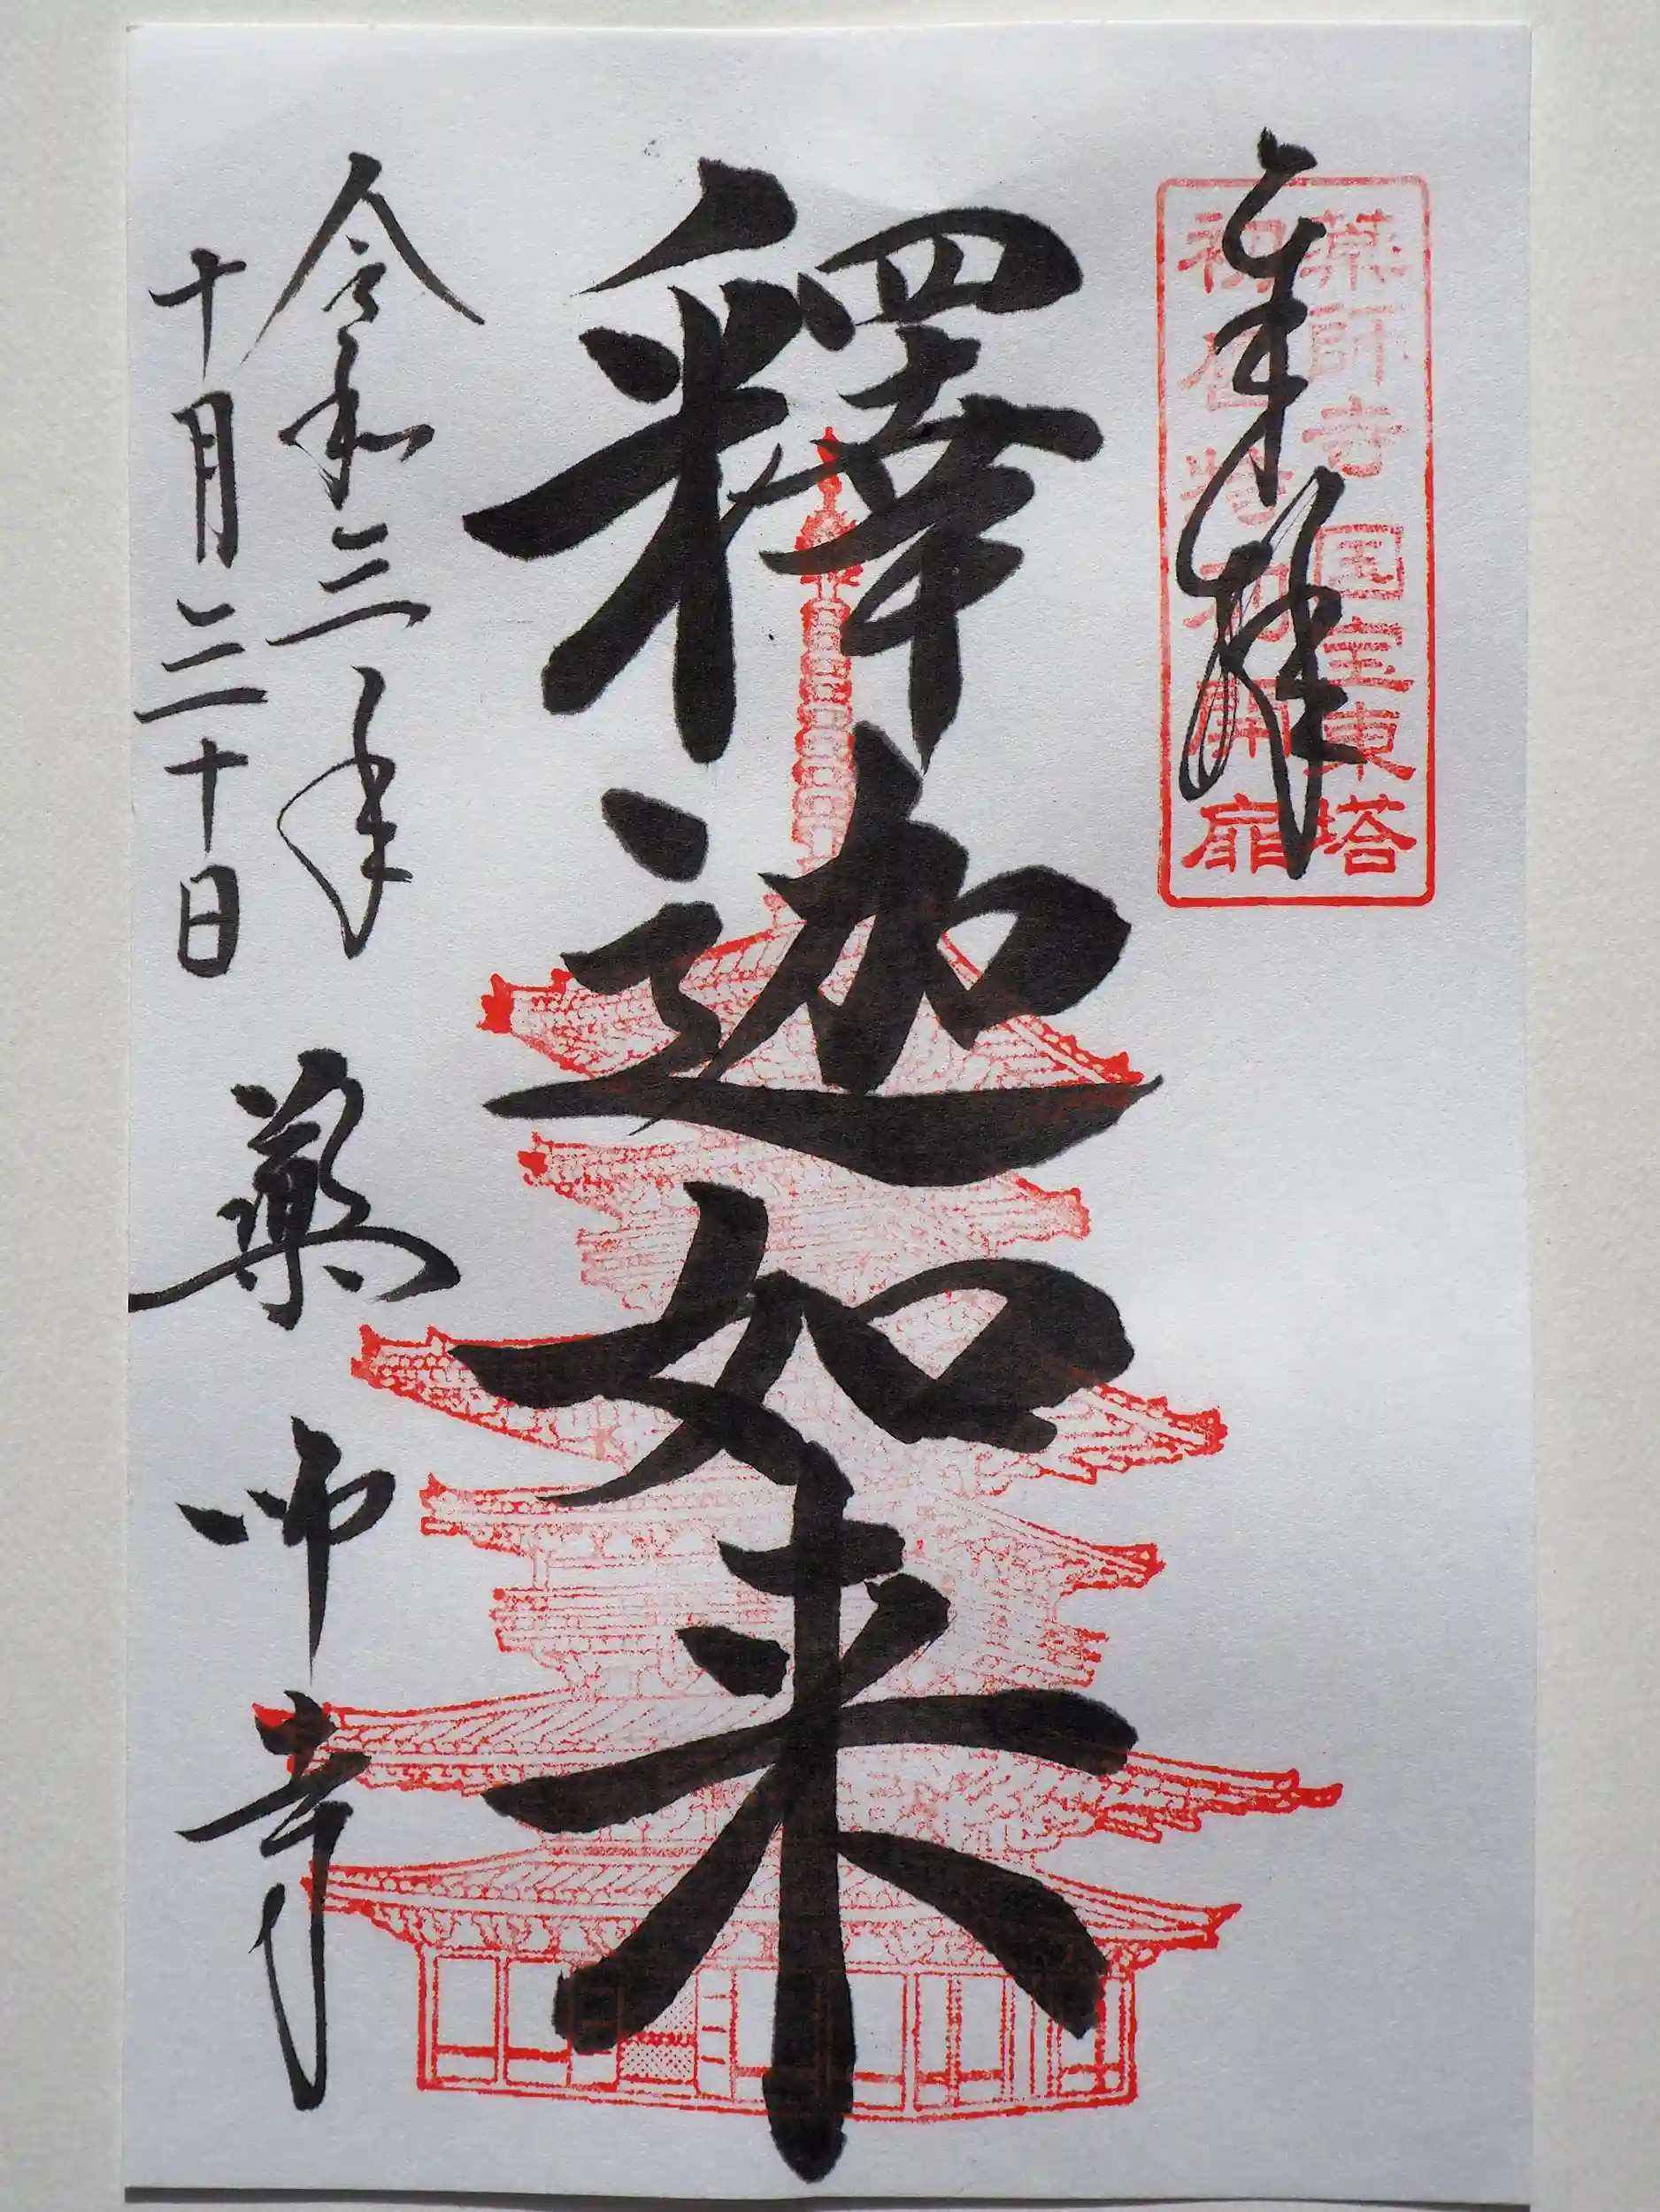 奉拝
薬師寺 国宝東塔
初層特別開扉
釋迦如来
令和三年
十月二十日
薬師寺